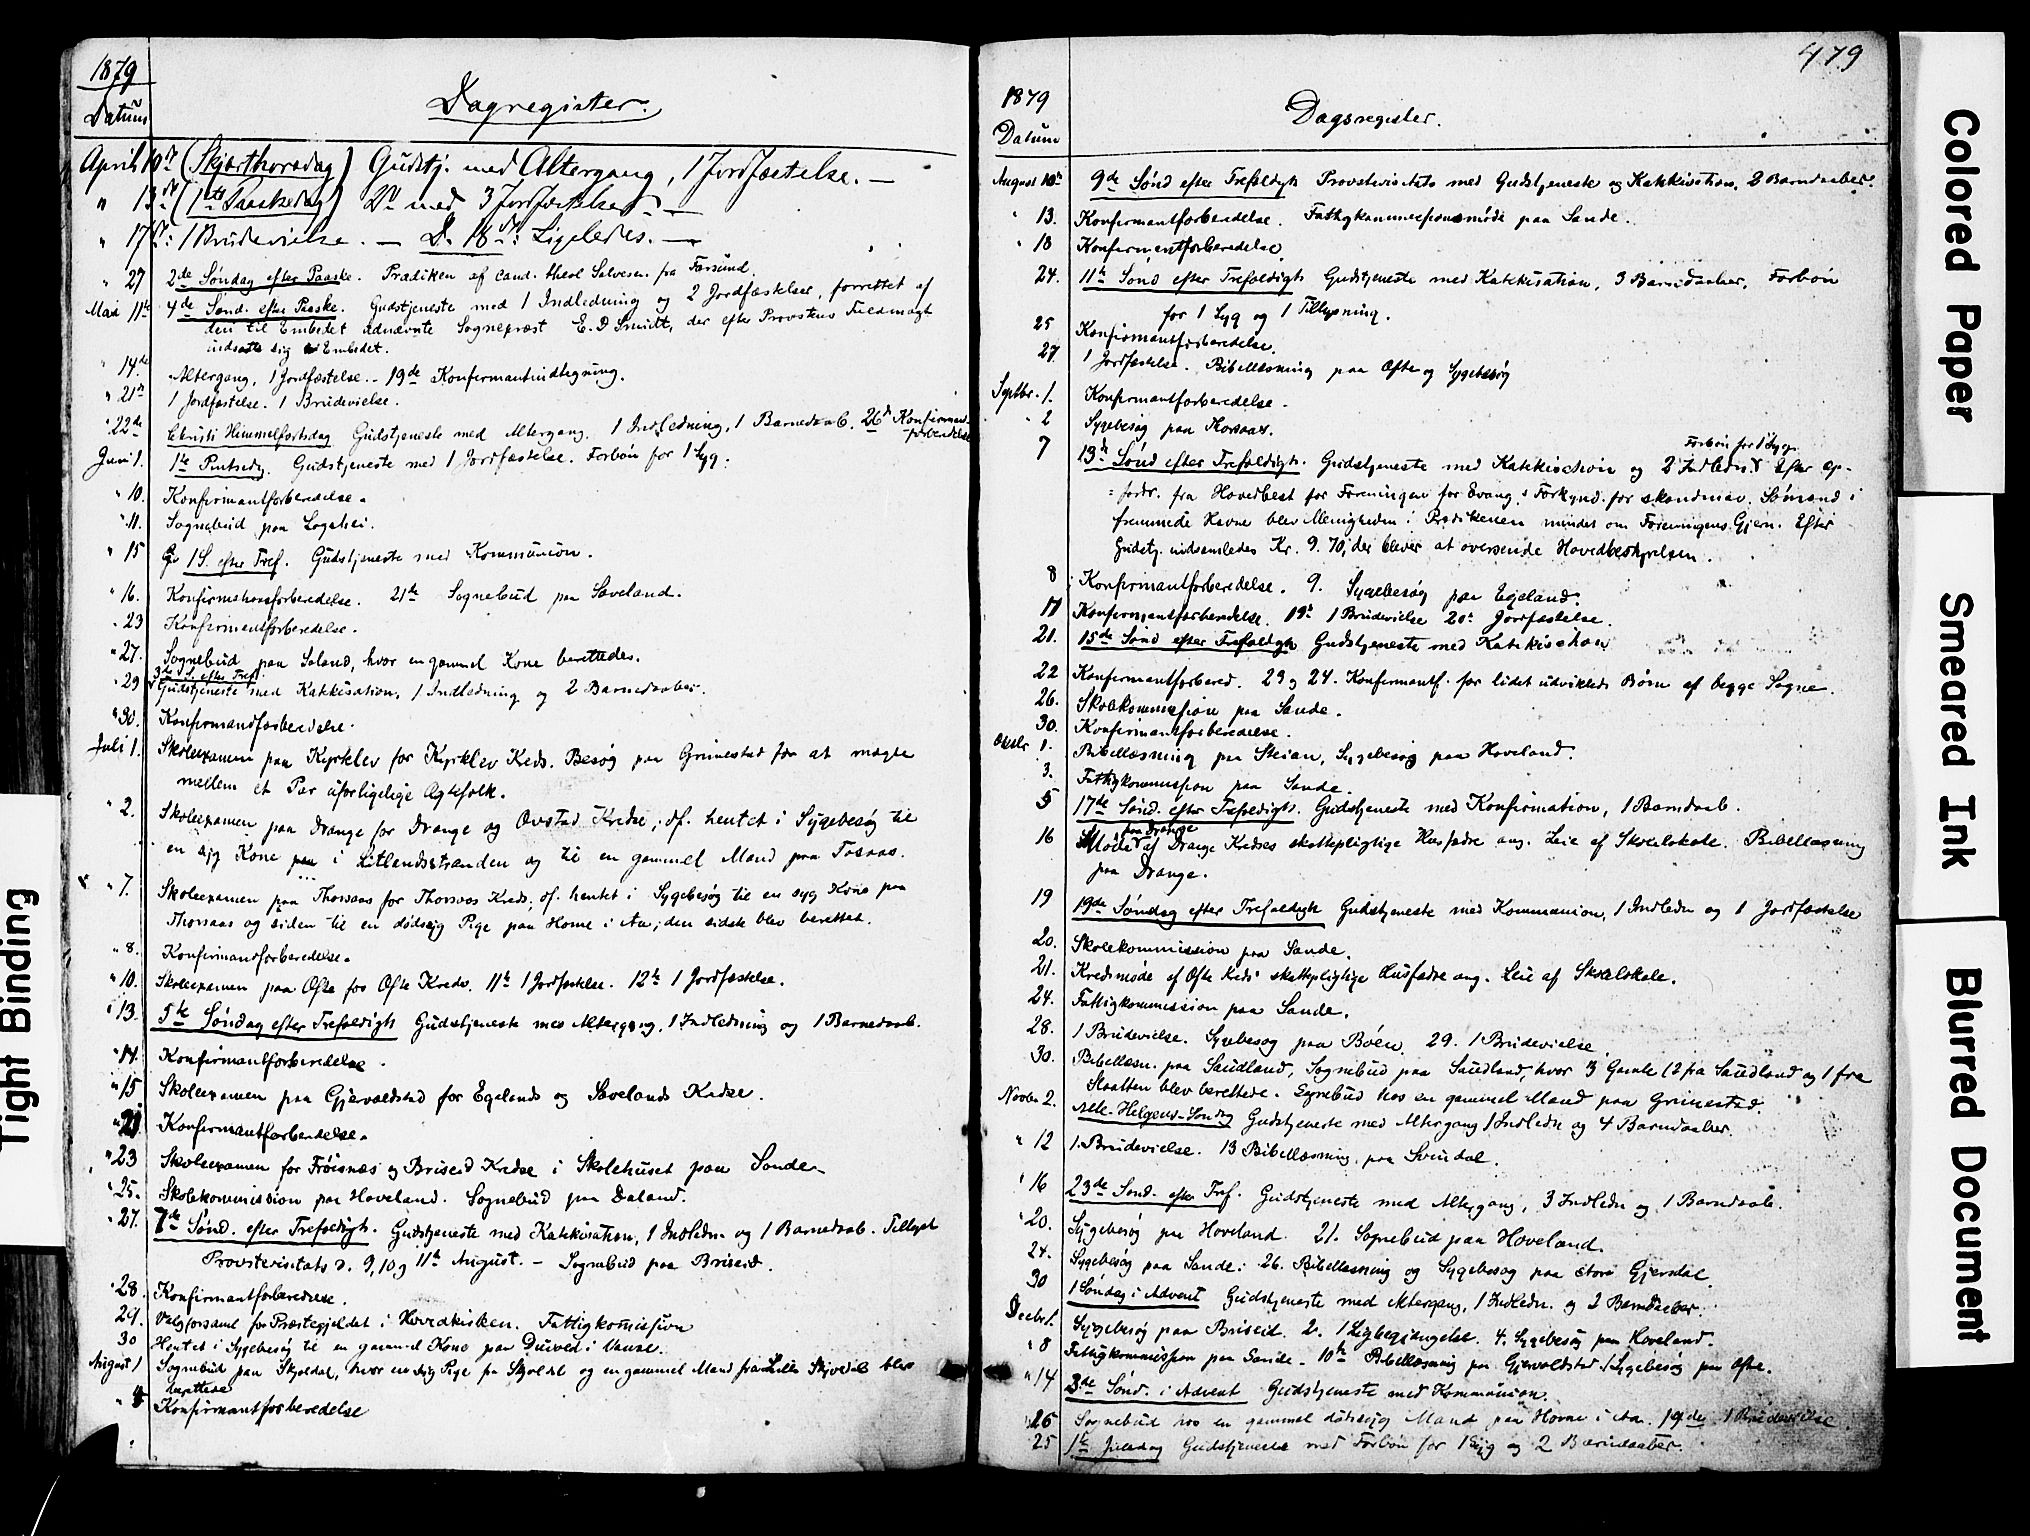 1879
Datum
Dagregister.
April 10de (Skjærthorsdag) Gudstj. med Altergang, 1 Jordfæstelse. —
" 13de (1ste Paaskedag) Do med 3 Jordfæstelser —
" 17de: 1 Brudevielse. — D. 18de: Ligeledes. —
" 27 2de Søndag efter Paaske. Prædiken af cand. theol Salvesen fra Farsund.
Mai 11te 4de Sønd. efter Paaske. Gudstjeneste med 1 Indledning og 2 Jordfæstelser, forrettet af
den til Embedet udnævnte Sognepræst E. D Smidt, der efter Provstens Fuldmagt
indsatte sig i Embedet.
" 14de Altergang, 1 Jordfæstelse. - 19de Konfirmantindtegning.
" 21de 1 Jordfæstelse. 1 Brudevielse.
" 22de Christi Himmelfartsdag Gudstjeneste med Altergang. 1 Indledning, 1 Barnedaab. 26de Konfirmant-
forberedelse
Juni 1. 1ste Pintsedg. Gudstjeneste med 1 Jordfæstelse. Forbøn for 1 Syg.
" 10. Konfirmantforberedelse.
" 11. Sognebud paa Log
" 15 1 S. efter Tref. Gudstjeneste med Kommunion.
" 16. Konfirmationsforberedelse. 21de Sognebud paa Saveland.
" 23 Konfirmantforberedelse.
" 27. Sognebud paa Saland, hvor en gammel Kone berettedes.
3die S. efter Tref.
" 29 Gudstjeneste med Katekisation, 1 Indledning og 2 Barnedaaber.
" 30. Konfirmandforberedelse.
Juli 1. Skoleexamen paa Kyrklev for Kyrklev Kreds. Besøg paa Grimestad for at mægle
mellem et Par uforligelige Ægtefolk.
" 2. Skoleexamen paa Drange for Drange og Ovstad Kredse; df. hentet i Sygebesøg til
en syg Kone i Litlandsstranden og til en gammel Mand paa Tosaas.
" 7. Skoleexamen paa Thorsaas for Thorsaas Kreds; df. hentet i Sygebesøg til en syg Kone paa
Thorsaas og siden til en dødssyg Pige paa Horne i Aa; den sidste blev berettet.
" 8. Konfirmantforberedelse.
" 10. Skoleexamen paa Øfte for Øfte Kreds. 11te 1 Jordfæstelse. 12te 1 Jordfæstelse.
" 13. 5te Søndag efter Trefoldigh Gudstjeneste med Altergang, 1 Indledning og 1 Barnedaab.
" 14. Konfirmantforberedelse.
" 15 Skoleexamen paa Gjervoldstad for Egelands og Savelands Kredse.
" 21 Konfirmantforberedelse.
" 23 Skoleexamen for Frøisnæs og Briseid Kredse i Skolehuset paa Sande
" 25. Skolekommission paa Hoveland. Sognebud paa Daland.
" 27. 7de Sønd. efter Trefoldigh. Gudstjeneste med Katekisation, 1 Indledn. og 1 Barnedaab. Tillyst
Provstevisitats d. 9, 10 og 11te August. - Sognebud paa Briseid.
" 28. Konfirmantforberedelse.
" 29. Valgforsaml for Præstegjeldet i Hovedkirken. Fattigkomission
30 Hentet i Sygebesøg til en gammel Kone paa Duived i Vanse.
August 1 Sognebud paa Skjoldal, hvor en syg Pige fr Skjoldal og en gammel Mand fra Lille Skjoldal blev
berettede
" 4 Konfirmantforberedelse
479
1879
Datum
Dagsregister.
August 10de 9de Sønd efter Trefoldigh Provstevisitats med Gudstjeneste og Katekisation, 2 Barndaaber.
" 13. Konfirmantforberedelse. Fattigkommissionsmøde paa Sande.
" 18 Konfirmantforberedelse.
24. 11te Sønd efter Trefoldigh Gudstjeneste med Katekisation, 3 Barndaaber, Forbøn
for 1 Syg og 1 Tillysning.
25 Konfirmantforberedelse.
27. 1 Jordfæstelse. Bibellæsning paa Øfte og Sygebesøg
Septbr. 1. Konfirmantforberedelse.
" 2 Sygebesøg paa Korsaas.
Forbøn for 1 Syg.
7 13de Sønd efter Trefoldigh. Gudstjeneste med Katekisation og 2 Indledn. Efter Op-
fordr. fra Hovedbest for Foreningen for Evang.s Forkynd. for skandinav. Sømænd i
fremmede Havne blev Menigheden i Prædikenen mindet om Foreningens Gjern. Efter
Gudstj. indsamledes Kr. 9.70, der blever at oversende Hovedbestyrelsen.
8 Konfirmantforberedelse. 9. Sygebesøg paa Egeland.
17 Konfirmantforberedelse. 19de 1 Brudevielse 20de Jordfæstelse.
21. 15de Sønd efter Trefoldigh Gudstjeneste med Katekisation
22 Konfirmantforbered. 23 og 24. Konfirmantf. for lidet udviklede Børn af begge Sogne.
26. Skolekommission paa Sande.
30. Konfirmantforberedelse.
Oktbr 1. Bibellæsning paa Steian, Sygebesøg paa Hoveland.
3. Fattigkommission paa Sande.
5 17de Sønd. efter Trefoldigh. Gudstjeneste med Konfirmation, 1 Barndaab.
paa Drange
16 Møde af Drange Kredses skattepligtige Husfædre ang. Leie af Skolelokale. Bibellæsning
paa Drange.
19 19de Søndag efter Trefoldigh Gudstjeneste med Kommunion, 1 Indledn og 1 Jordfæstelse
20. Skolekommission paa Sande.
21. Kredsmøde af Øfte Kreds' skattepligtige Husfædre ang. Leie af Skolelokale.
24. Fattigkommission paa Sande.
28. 1 Brudevielse. Sygebesøg paa Bøen. 29. 1 Brudevielse
30. Bibellæsn. paa Saudland, Sognebud paa Saudland, hvor 3 Gamle (2 fra Saudland og 1 fra
Slaatten blev berettede. Sognebud hos en gammel Mand paa Grimestad.
Novbr 2. Alle-Helgens-Søndg Gudstjeneste med Altergang 1 Indledn og 4 Barndaaber.
" 12 1. Brudevielse. 13 Bibellæsning paa Svindal.
" 16 23de Sønd. efter Tref. Gudstjeneste med Altergang, 3 Indledn og 1 Barndaab.
" 20. Sygebesøg paa Hoveland. 21. Sognebud paa Hoveland.
24. Sygebesøg paa Sande. 26. Bibellæsning og Sygebesøg paa Store Gjersdal.
30 1 Søndag i Advent Gudstjeneste med Altergang, 1 Indledn. og 2 Barndaaber.
Decbr 1. Sygebesøg paa Briseid. 2. 1 Ligbegjængelse. 4. Sygebesøg paa Hoveland.
" 8 Fattigkommission paa Sande. 10de Bibellæsning paa Gjervoldstad. Sygebesøg paa Øfte.
" 14 3de Sønd. i Advent Gudstjeneste med Kommunion.
Sognebud hos en gammel dødssyg Mand paa Horne i Aa. 19de 1 Brudevielse
25 1ste Juledag Gudstjeneste med Forbøn for 1 Syg og 2 Barnedaaber.
Tight Binding
Colored Paper
Smeared Ink
Blurred Document